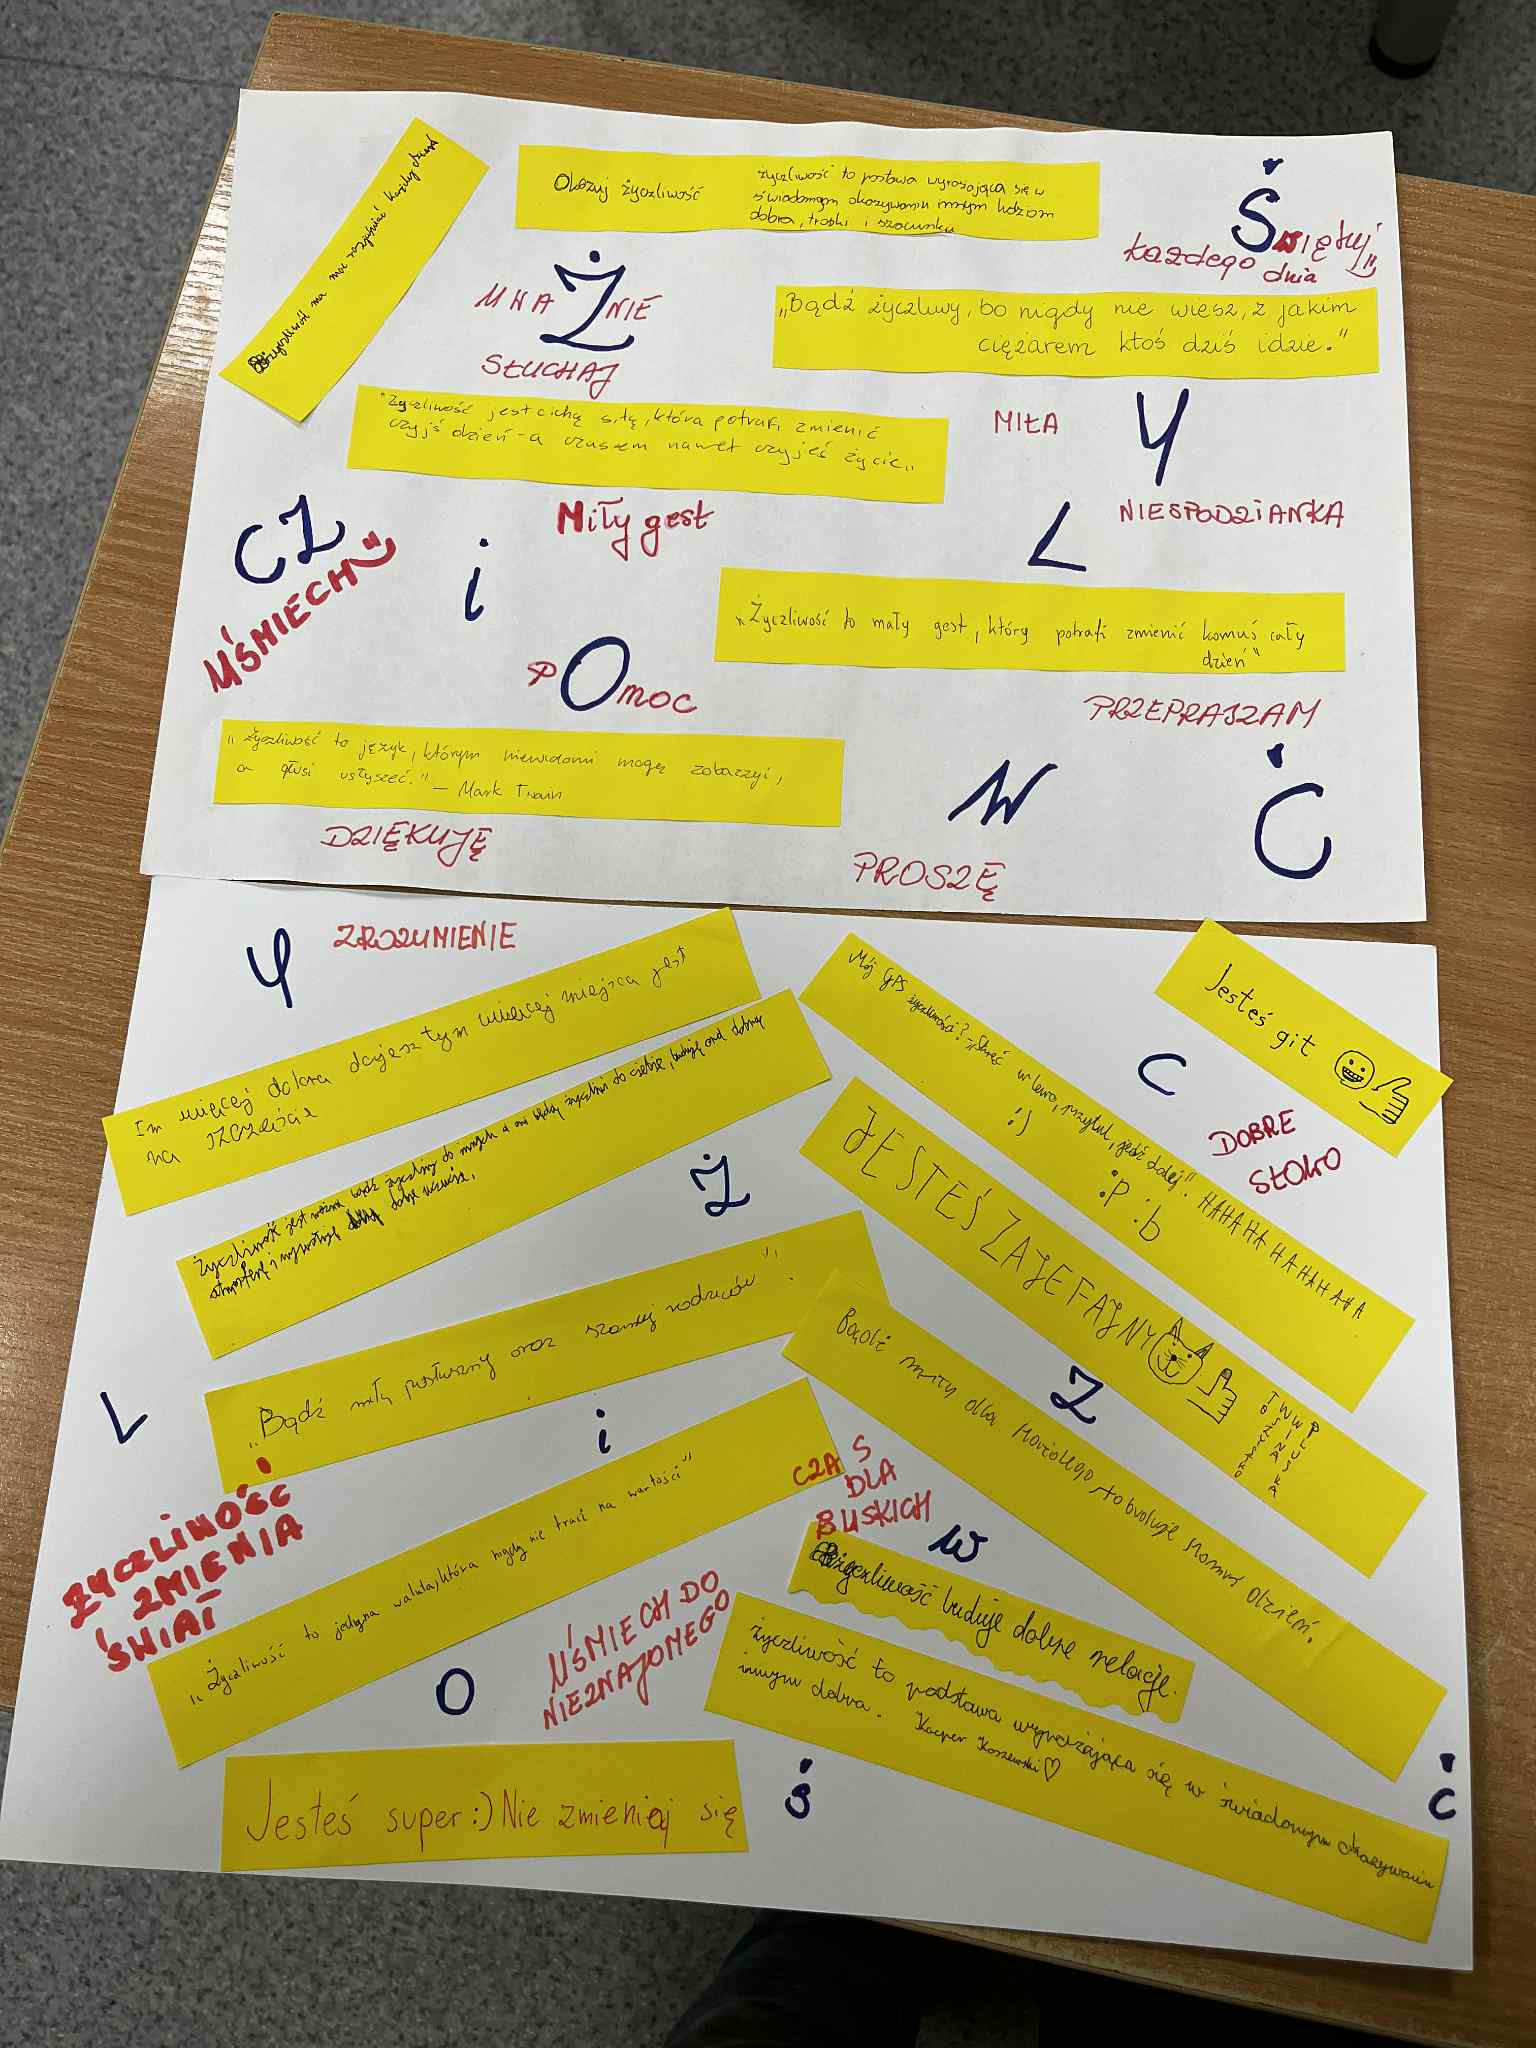 Życzliwość ma moc rozjaśniać każdy dzień
Okazuj życzliwość
życzliwość to postawa wyrażająca się w
świadomym okazywaniu innym ludziom
dobra, troski i szacunku
Święluj
każdego dnia
UWAŻNIE
SŁUCHAJ
„Bądź życzliwy, bo nigdy nie wiesz, z jakim
ciężarem ktoś dziś idzie."
"Życzliwość jest cichą siłą, która potrafi zmienić
czyjś dzień - a czasem nawet czyjeś życie„
MIŁA
Y
NIESPODZIANKA
CZ
UŚMIECH
i
Miły gest
L
„Życzliwość to mały gest, który potrafi zmienić komuś cały
dzień"
POmoc
PRZEPRASZAM
„Życzliwość to język, którym niewidomi mogą zobaczyć,
a głusi usłyszeć." – Mark Twain
DZIĘKUJĘ
W
PROSZĘ
Ć
Y
ZROZUMIENIE
Im więcej dobra dajesz tym więcej miejsca jest
na szczęście
Życzliwość jest ważna bądź życzliwy do innych a oni będą życzliwi do ciebie, budują ona dobrą
atmosferę i wywołuje dobre uczucia.
Ż
„Bądź miły posłuszny oraz szanuj rodziców".
L
i
ŻYCZLIWOŚĆ
ZMIENIA
ŚWIAT
„Życzliwość to jedyna waluta, która nigdy nie traci na wartości"
O
UŚMIECH DO
NIEZNAJOMEGO
Jesteś super :) Nie zmieniaj się
Ś
Jesteś git
C
DOBRE
SŁOWO
Mój GPS życzliwości? - „Skręć w lewo, przytul, jedź dalej". HAHAHA HAHAHAHA
:)
:P :b
JESTEŚ ZAJEFAJNY
PLUSKA
Z
Bądź miły dla każdego, to buduje komuś dzień.
CZAS
DLA
BLISKICH
W
Życzliwość buduje dobre relacje.
życzliwość to podstawa wyrażająca się w świadomym okazywaniu
innym dobra. Kacper Koszewski ♡
Ć